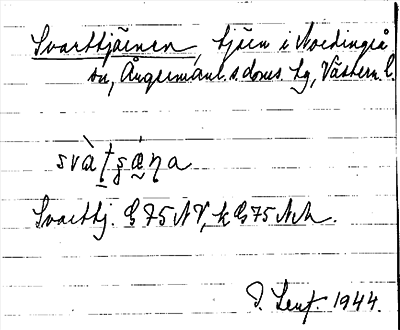 Svarttjärnen, tjärn i Nordingrå
sn, Ångermanl. s. doms. hg, Västern. l.
Svarttj. G 75 NV, k G 75 NN.
D. Lent 1944.